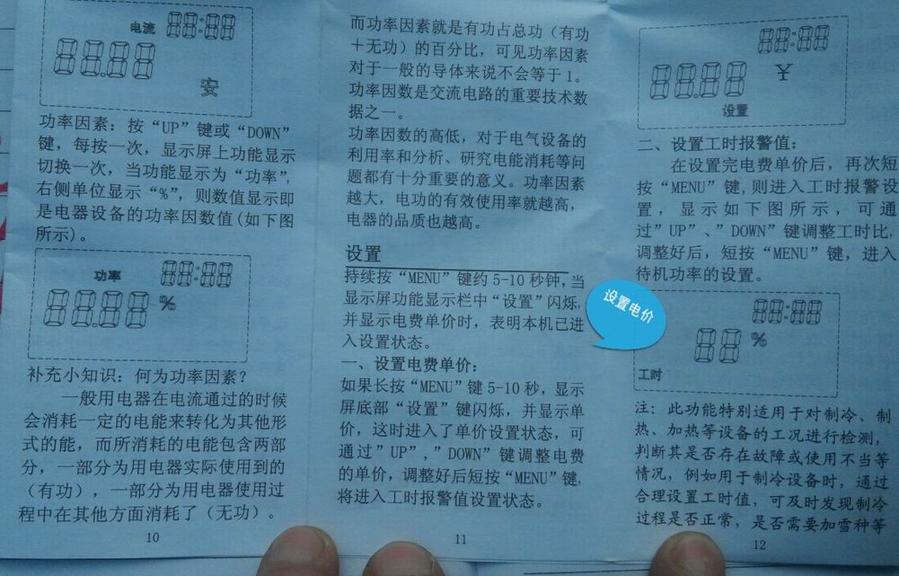 电流
88:88
88.88
安
功率因素：按“UP”键或“DOWN”
键，每按一次，显示屏上功能显示
切换一次，当功能显示为“功率”，
右侧单位显示“%”，则数值显示即
是电器设备的功率因数值(如下图
所示)。
功率
88:88
88.88
%
补充小知识：何为功率因素？
一般用电器在电流通过的时候
会消耗一定的电能来转化为其他形
式的能，而所消耗的电能包含两部
分，一部分为用电器实际使用到的
（有功），一部分为用电器使用过
程中在其他方面消耗了（无功）。
10
而功率因素就是有功占总功（有功
＋无功）的百分比，可见功率因素
对于一般的导体来说不会等于1。
功率因数是交流电路的重要技术数
据之一。
功率因数的高低，对于电气设备的
利用率和分析、研究电能消耗等问
题都有十分重要的意义。功率因素
越大，电功的有效使用率就越高，
电器的品质也越高。
设置
持续按“MENU”键约5-10秒钟,当
显示屏功能显示栏中“设置”闪烁，
并显示电费单价时，表明本机已进
入设置状态。
一、设置电费单价：
如果长按“MENU”键5-10秒，显示
屏底部“设置”键闪烁，并显示单
价，这时进入了单价设置状态，可
通过”UP”,”DOWN”键调整电费
的单价，调整好后短按“MENU”键，
将进入工时报警值设置状态。
11
设置电价
88:88
88.88
￥
设置
二、设置工时报警值：
在设置完电费单价后，再次短
按“MENU”键,则进入工时报警设
置，显示如下图所示，可通
过”UP”、”DOWN”键调整工时比，
调整好后，短按“MENU”键，进入
待机功率的设置。
88:88
88
%
工时
注：此功能特别适用于对制冷、制
热、加热等设备的工况进行检测，
判断其是否存在故障或使用不当等
情况，例如用于制冷设备时，通过
合理设置工时值，可及时发现制冷
过程是否正常，是否需要加雪种等
12